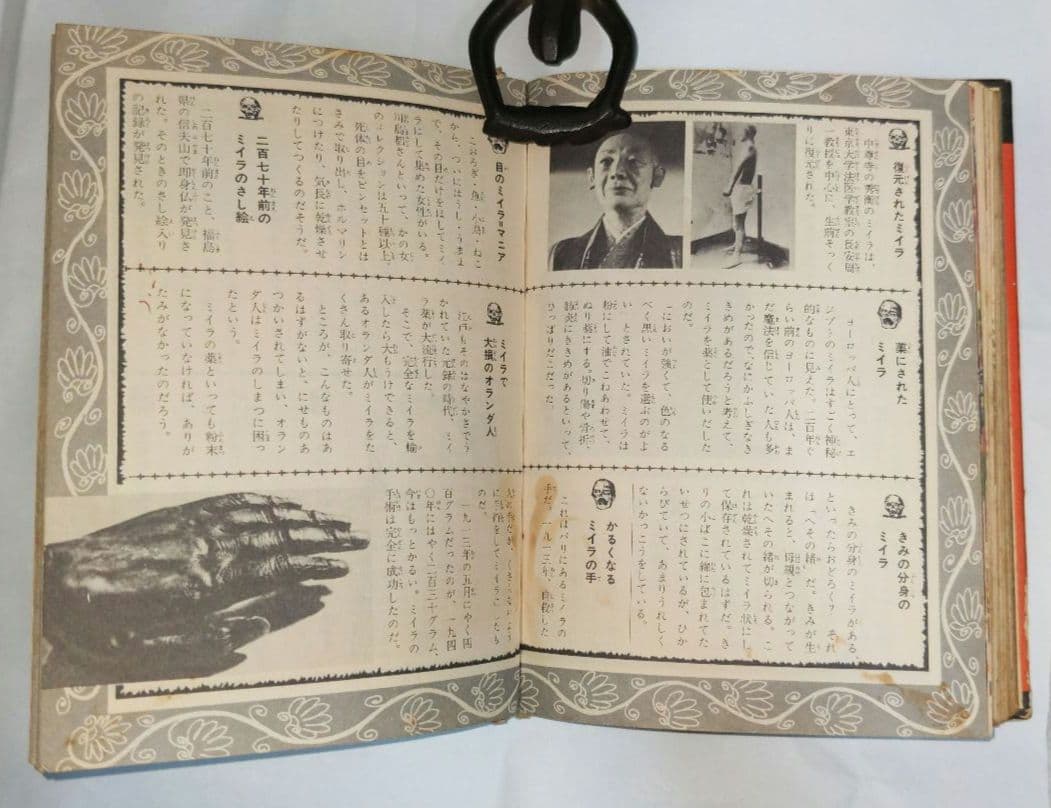 復元されたミイラ
中尊寺の秀衡のミイラは、
東京大学法医学教室の長安周
一教授を中心に、生前そっく
りに復元された。
薬にされた
ミイラ
ヨーロッパ人にとって、エ
ジプトのミイラはすごく神秘
的なものに見えた。二百年ぐ
らい前のヨーロッパ人は、ま
だ魔法を信じていた人も多
かったので、なにかふしぎなき
きめがあるだろうと考えて、
ミイラを薬として使いだした
のだ。
においが強くて、色のなる
べく黒いミイラを選ぶのがよ
い とされていた。ミイラは
粉にして油でこねあわせて、
ぬり薬にする。切り傷や骨折、
肺炎にききめがあるといって、
ひっぱりだこだった。
きみの分身の
ミイラ
きみの分身のミイラがある、
といったらおどろく？ それ
は「へその緒」だ。きみが生
まれると、母親とつながって
いたへその緒が切られる。こ
れは乾燥されてミイラ状にし
て保存されているはずだ。き
りの小ばこに綿に包まれてた
いせつにされているが、ひか
らびていて、あまりうれしく
ないかっこうをしている。
かるくなる
ミイラの手
これはパリにあるミイラの
手だ。一九一三年、自殺した
のだ。
一九一三年の五月にやく四
百グラムだったのが、一九四
〇年にはやく二百三十グラム、
今はもっとかるい。ミイラの
手術は完全に成功したのだ。
目のミイラ=マニア
こおろぎ・魚・小鳥・ねこ
から、ついにはうし・うまま
で、その目だけをほしてミイ
ラにして集めた女性がいる。
さんといって、かの女
のコレクションは五十種以上。
死体の目をピンセットとは
さみで取り出し、ホルマリン
につけたり、気長に乾燥させ
たりしてつくるのだそうだ。
二百七十年前の
ミイラのさし絵
二百七十年前のこと、福島
県の信夫山で即身仏が発見さ
れた。そのときのさし絵入り
の記録が発見された。
ミイラで
大損のオランダ人
江戸もそのはなやかさでう
かれていた元禄の時代、ミイ
ラ薬が大流行した。
そこで、完全なミイラを輸
入したら大もうけできると、
あるオランダ人がミイラをた
くさん取り寄せた。
ところが、こんなものはあ
るはずがないと、にせものあ
つかいされてしまい、オラン
ダ人はミイラのしまつに困っ
たという。
ミイラの薬といっても粉末
になっていなければ、ありが
たみがなかったのだろう。